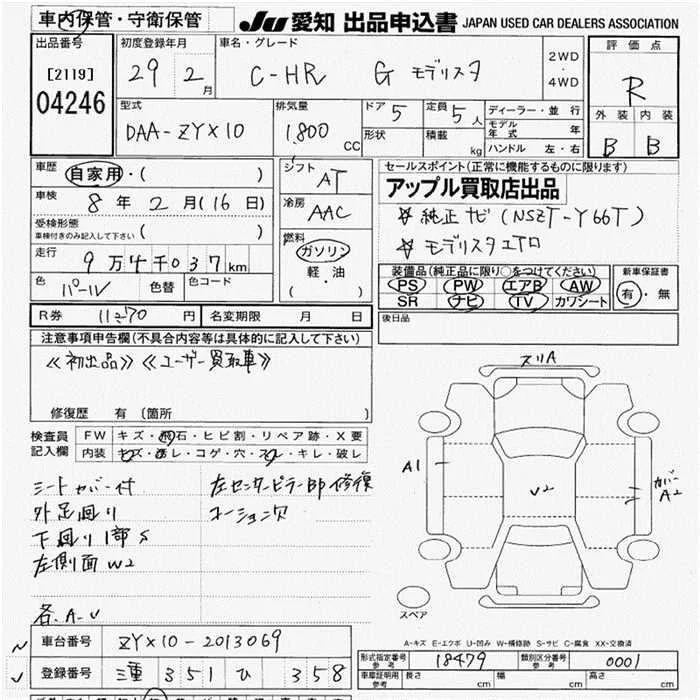 車内保管・守衛保管
JU 愛知 出品申込書 JAPAN USED CAR DEALERS ASSOCIATION
出品番号 [2119] 04246
初度登録年月 29 2月
車名・グレード C-HR G モデリスタ
2WD・4WD
評価点 R
外装 内装
B B
型式 DAA-ZYX10
排気量 1.800 CC
ドア 5
形状
定員 5人
積載 kg
ディーラー・並行
モデル年式 年
ハンドル 左・右
車歴 自家用・( )
車検 8年2月(16日)
受検形態
車検付きのみ記入して下さい ( )
走行 9万4千037km
色 パール 色替 色コード
シフト AT
冷房 AAC
燃料 ガソリン
軽・油
( )
セールスポイント(正常に機能するものに限ります)
アップル買取店出品
☆純正ナビ(NSZT-Y66T)
☆モデリスタエアロ
装備品(純正品に限り○をつけてください)
PS PW エアB AW
SR ナビ TV カワシート
新車保証書
有・無
後日品
R券 円 名変期限 月 日
注意事項申告欄(不具合内容等は具体的に記入して下さい)
≪初出品≫≪ユーザー買取車≫
修復歴 有 〔箇所 〕
検査員記入欄
FW キズ・飛石・ヒビ割・リペア跡・X要
内装 キズ・汚レ・コゲ・穴・スレ・キレ・破レ
シートカバー付
外足廻り
下廻り1部S
左側面W2
各、A-U
左センターピラー部修復
コーション欠
スリA
A1
V2
カバーA2
スペア
A-キズ E-エクボ U-凹み W-補修跡 S-サビ C-腐食 XX-交換済
車台番号 ZYX10-2013069
登録番号 三重 351 ひ 358
形式指定番号 参考 18479
類別区分番号 参考 0001
車庫証明用 参考 長さ cm 幅 cm 高さ cm